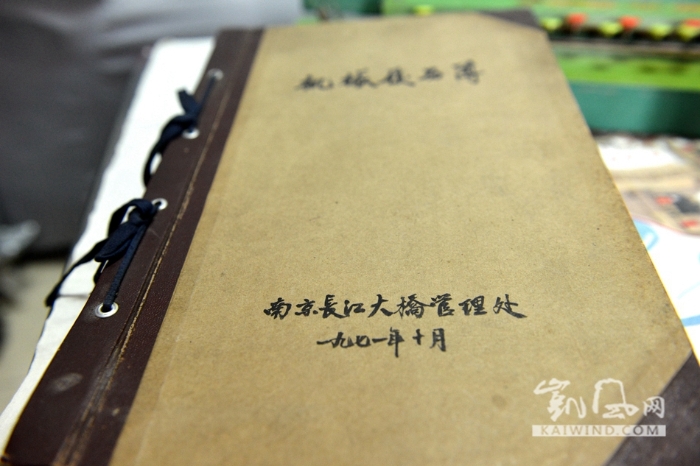 南京長江大橋管理处
一九七一年十月
凱风网
KAIWIND.COM